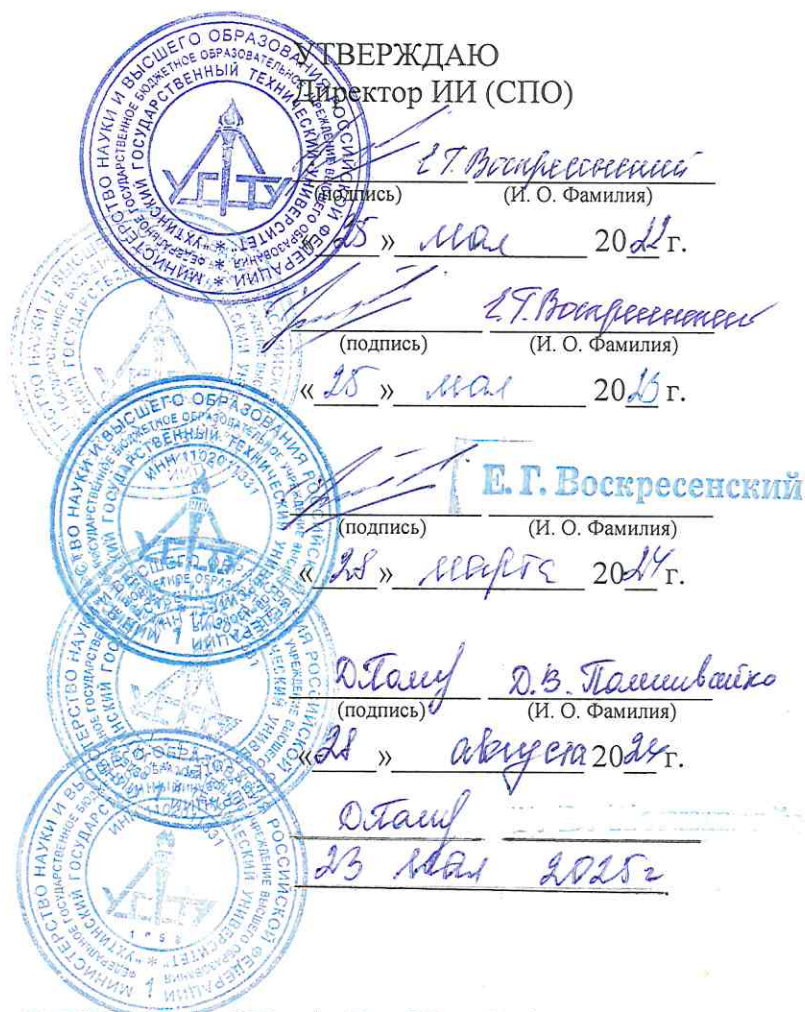 УТВЕРЖДАЮ
Директор ИИ (СПО)
Е.Г. Воскресенский
(подпись) (И. О. Фамилия)
«25» мая 2022 г.
Е.Г. Воскресенский
(подпись) (И. О. Фамилия)
«25» мая 2023 г.
Е. Г. Воскресенский
(подпись) (И. О. Фамилия)
«28» марта 2024 г.
Д.В.
(подпись) (И. О. Фамилия)
«28» августа 2024 г.
23 мая 2025г
МИНИСТЕРСТВО НАУКИ И ВЫСШЕГО ОБРАЗОВАНИЯ РОССИЙСКОЙ ФЕДЕРАЦИИ
ФЕДЕРАЛЬНОЕ ГОСУДАРСТВЕННОЕ БЮДЖЕТНОЕ ОБРАЗОВАТЕЛЬНОЕ УЧРЕЖДЕНИЕ ВЫСШЕГО ОБРАЗОВАНИЯ
"УХТИНСКИЙ ГОСУДАРСТВЕННЫЙ ТЕХНИЧЕСКИЙ УНИВЕРСИТЕТ"
УГТУ